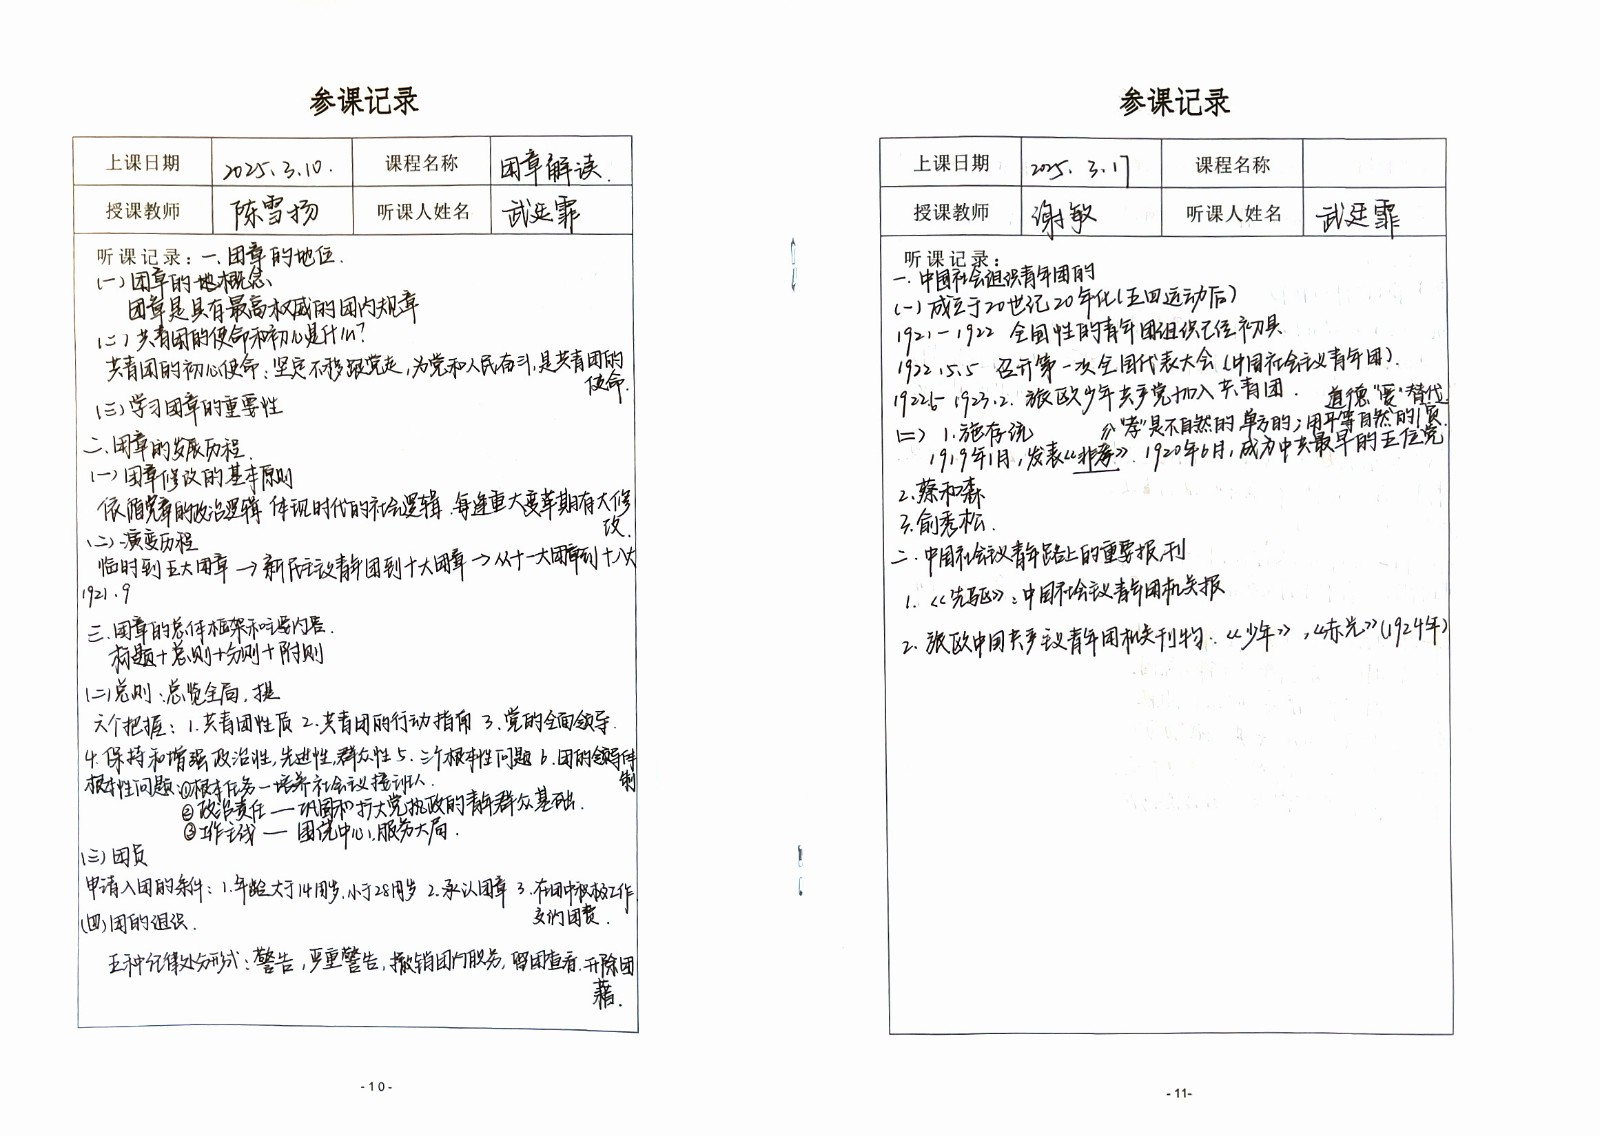 参课记录
上课日期 2025.3.10. 课程名称 团章解读.
授课教师 陈雪扬 听课人姓名 武廷霏
听课记录：一、团章的地位.
(一)团章的地概念
团章是具有最高权威的团内规章
(二)共青团的使命和初心是什么?
共青团的初心使命:坚定不移跟党走,为党和人民奋斗,是共青团的
使命.
(三)学习团章的重要性
二.团章的发展历程.
(一)团章修改的基本原则
依循党章的政治逻辑 体现时代的社会逻辑.每逢重大变革期有大修
改.
(二)演变历程
临时到五大团章→新民主主义青年团到十大团章→从十一大团章到十八大
1921.9
三.团章的总体框架和主要内容.
标题+总则+分则+附则
(二)总则:总览全局,提
六个把握:1.共青团性质 2.共青团的行动指南 3.党的全面领导.
4.保持和增强政治性,先进性,群众性 5.三个根本性问题 6.团的领导体
制
根本性问题:①根本任务—培养社会主义接班人.
②政治责任—巩固和扩大党执政的青年群众基础.
③工作主线—围绕中心,服务大局.
(三)团员
申请入团的条件:1.年龄大于14周岁,小于28周岁 2.承认团章 3.在团中积极工作
交纳团费.
(四)团的组织.
五种纪律处分形式:警告,严重警告,撤销团内职务,留团查看.开除团
籍.
-10-
参课记录
上课日期 2025.3.17 课程名称
授课教师 谢敏 听课人姓名 武廷霏
听课记录：
一.中国社会组织青年团的
(一)成立于20世纪20年代(五四运动后)
1921-1922 全国性的青年团组织已经初具
1922.5.5 召开第一次全国代表大会(中国社会主义青年团).
1922.6-1923.2. 旅欧少年共产党加入共青团.
道德"爱"替代.
(二) 1.施存统 "孝"是不自然的单方的;用平等自然的
1919年1月,发表《非孝》.1920年6月,成为中共最早的五位党
2.蔡和森
3.俞秀松.
二.中国社会主义青年路上的重要报刊
1.《先驱》:中国社会主义青年团机关报
2.旅欧中国共产主义青年团机关刊物:《少年》,《赤光》(1924年)
-11-